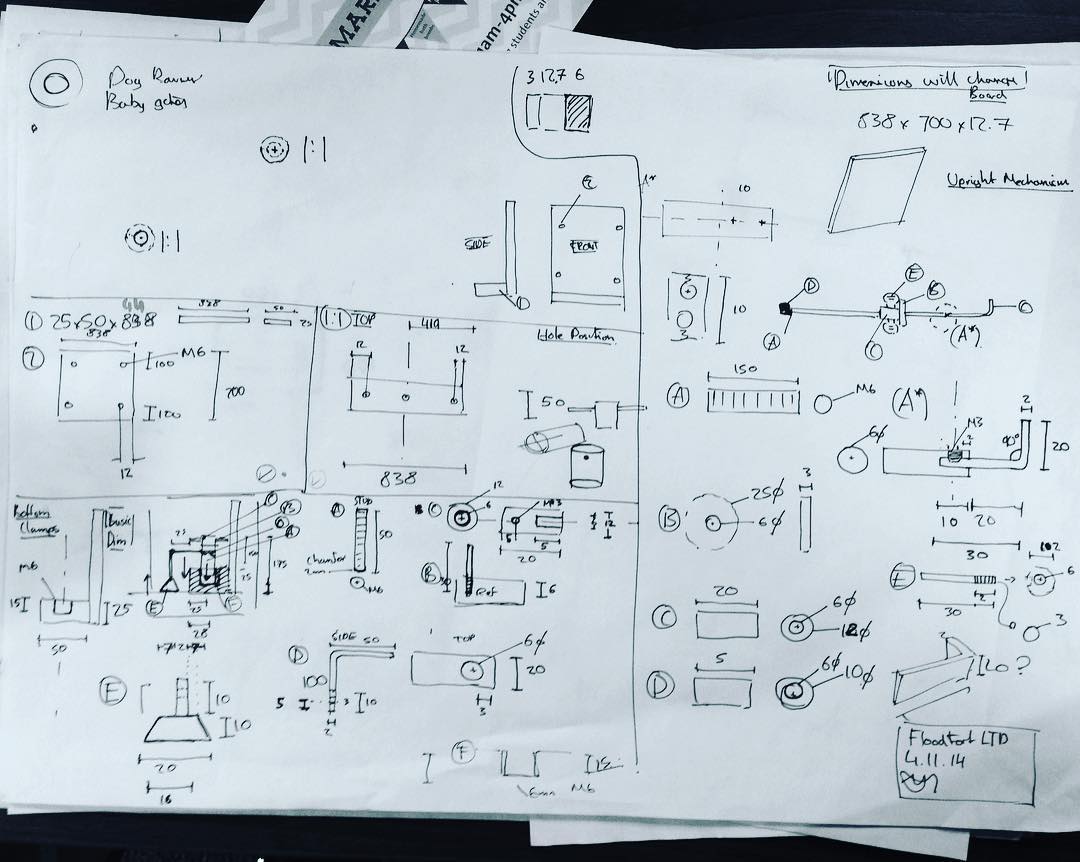 MAR
am-4pm
students an
Baby gates
1:1
1:1
3 12.7 6
! Dimensions will change !
Board
838 x 700 x 12.7
Upright Mechanism
A*
10
SIDE
FRONT
D
10
3
3
D
E
B
A
C
(A*)
① 25x50x838
44
838
50
25
②
838
M6
100
700
120
12
(1:1) TOP
419
12
12
838
Hole Position
50
A
150
M6
(A*)
6φ
M3
2
2
90°
20
10
20
30
B
25φ
6φ
3
C
20
6φ
12φ
D
5
6φ
10φ
E
30
2
6
3
20?
FloodFort LTD
4.11.14
Bottom
Clamps
M6
15
50
25
Basic
Dim
25
175
25
28
E
A
STUD
50
chamfer
2mm
M6
C
12
6
5
5
20
12
B
Ref
6
D
SIDE 50
100
5
3
10
2
TOP
6φ
20
3
E
10
10
20
16
F
15
6mm M6